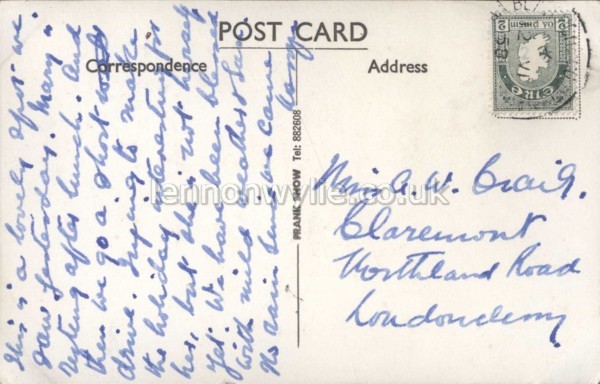 POST CARD
Correspondence
Address
This is a lovely spot we
saw yesterday. Mary is
resting after lunch. And
then we go a short
drive. Trying to make
the holiday interesting for
her, but she is not
yet. We have been blessed
with mild weather &
No rain since we came
FRANK SHOW Tel: 882608
2
2
OA PINSIN
EIRE
Miss A. W. Craig.
Claremont
Northland Road
Londonderry
lennonwylie.co.uk